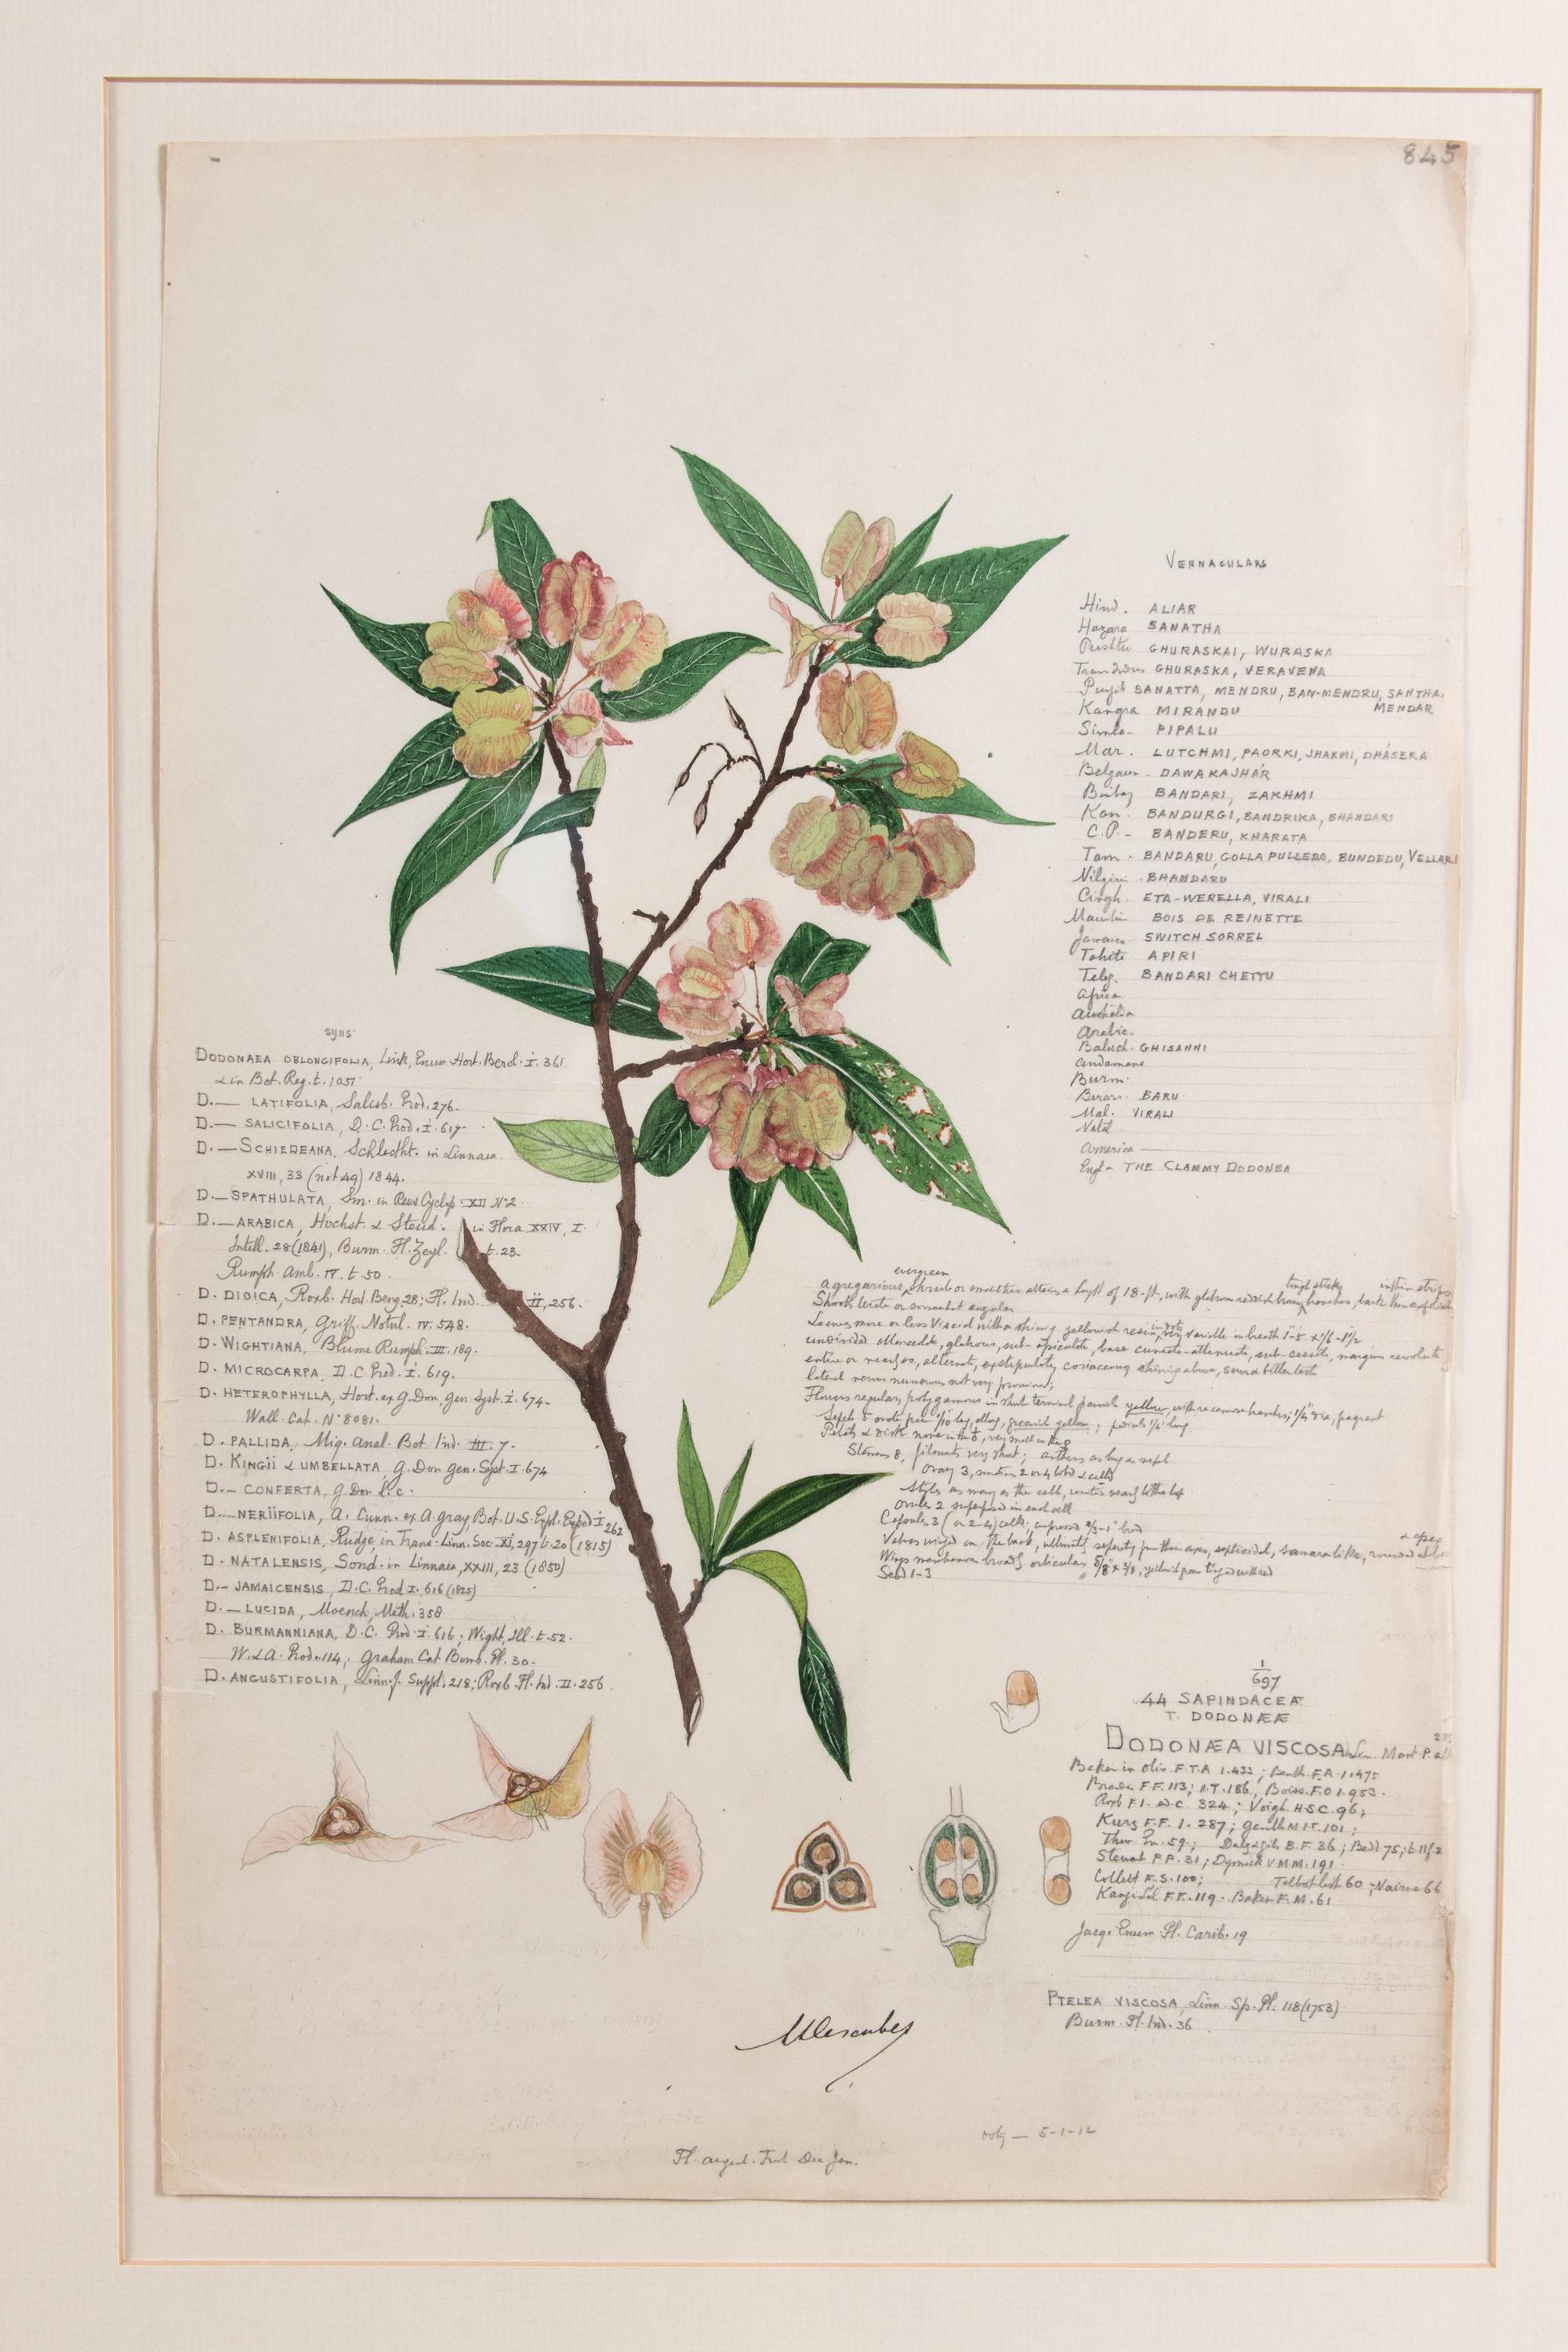 845
VERNACULARS
Hind. ALIAR
Hazara SANATHA
Pushtu GHURASKAI, WURASKA
Trans Indus GHURASKA, VERAVENA
Punjab SANATTA, MENDRU, BAN-MENDRU, SANTHA.
MENDAR
Kangra MIRANDU
Simla- PIPALU
Mar. LUTCHMI, PAORKI, JHAKMI, DHÁSERA
Belgaum- DAWAKAJHÁR
BANDARI, ZAKHMI
Kan. BANDURGI, BANDRIKA, BHANDARI
C.P.- BANDERU, KHARATA
Tam. BANDARU, GOLLA PULLEDA, BUNDEDU, VELLARI
Nilgiri BHANDARU
Cingh. ETA-WERELLA, VIRALI
BOIS DE REINETTE
Jamaica SWITCH SORREL
Tahiti APIRI
Teleg. BANDARI CHETTU
Africa
Australia
Arabic.
Baluch. GHISANNI
Andamans
Burm.
Berar. BARU
Mal. VIRALI
Natal
America
Engl- THE CLAMMY DODONEA
syns
DODONAEA OBLONGIFOLIA, Link, Enum Hort. Berol. I. 361
& in Bot. Reg. t. 1051
D.— LATIFOLIA, Salisb. Prod. 276.
D.— SALICIFOLIA, D.C. Prod. I. 617
D.— SCHIEDEANA, Schlecht. in Linnaea
XVIII, 33 (not 49) 1844.
D.— SPATHULATA, Sm. in Rees Cyclop. XII N.2
D.— ARABICA, Hochst. & Steud. in Flora XXIV, I.
Intell. 28 (1841), Burm. Fl. Zeyl. t. 23.
Rumph. Amb. IV. t. 50.
D. DIOICA, Roxb. Hort. Beng. 28; Fl. Ind. II, 256.
D. PENTANDRA, Griff. Notul. IV. 548.
D. WIGHTIANA, Blume Rumph. III. 189.
D. MICROCARPA, D.C. Prod. I. 619.
D. HETEROPHYLLA, Hort. ex G. Don Gen. Syst. I. 674-
Wall. Cat. No 8081.
D. PALLIDA, Miq. Anal. Bot. Ind. III. 7.
D. KINGII & UMBELLATA G. Don Gen. Syst. I. 674
D.— CONFERTA, G. Don l.c.
D.— NERIIFOLIA, A. Cunn. ex A. Gray, Bot. U.S. Expl. Exped. I 262
D. ASPLENIFOLIA, Rudge, in Trans. Linn. Soc. XI, 297 t. 20 (1815)
D. NATALENSIS, Sond. in Linnaea, XXIII, 23 (1850)
D.- JAMAICENSIS, D.C. Prod I. 616 (1825)
D.— LUCIDA, Moench, Meth. 358
D. BURMANNIANA, D.C. Prod. I. 616; Wight, Ill. t. 52.
W. & A. Prod. 114; Graham Cat Bomb. Pl. 30.
D. ANGUSTIFOLIA, Linn. f. Suppl. 218; Roxb Fl. Ind. II. 256
evergreen
A gregarious shrub or small tree attains a height of 18-ft, with glabrous branches, bark thin
Shoots terete or somewhat angular
Leaves more or less viscid with a shining yellowish resin, very variable in breath
undivided, glabrous, sub-apiculate, base cuneate-attenuate, sub-sessile, margins revolute
entire or nearly so, alternate, exstipulate, coriaceous shining above, sour & bitter taste
lateral nerves numerous not very prominent;
Flowers regular, polygamous in short terminal panicle yellow, fragrant
Sepals 5 greenish yellow; pedicels 1/4 long
Petals & disk none
Stamens 8, filaments very short; anthers as long as sepals
Ovary 3, sometimes 2 or 4 lobed & celled
Styles as many as the cell, united nearly to the top
Ovules 2 superposed in each cell
Capsule 3 (or 2-4) celled, compressed
Valves winged on the back, ultimately separating from the axis, septicidal, samara like, rounded at base
& apex
Wings membranous broadly orbicular 5/8 x 3/8, yellowish green tinged with red
Seed 1-3
1/697
44 SAPINDACEÆ
T. DODONÆÆ
DODONÆA VISCOSA Lin. Mant. P.
Baker in Oliv. F.T.A 1.433; Benth. F.A. 1.475
F.F. 113; 186, Boiss. F.O 1.953.
Roxb F.I. ed. C. 324; Voigh. H.S.C. 96;
Kurz F.F. 1. 287; 101;
59; Dalz & Gib. B.F. 36; Bedd 75; t. 11 f 2
Stewart P.P. 31; Dymock V.M.M. 191
Collett F.S. 100; Talbot List 60; Nairne 66
F.F. 119. Baker F.M. 61
Jacq. Enum. Pl. Carib. 19
PTELEA VISCOSA, Linn. Sp. Pl. 118 (1753)
Burm. Fl. Ind. 36
Ooty — 5-1-12
Dec-Jan.